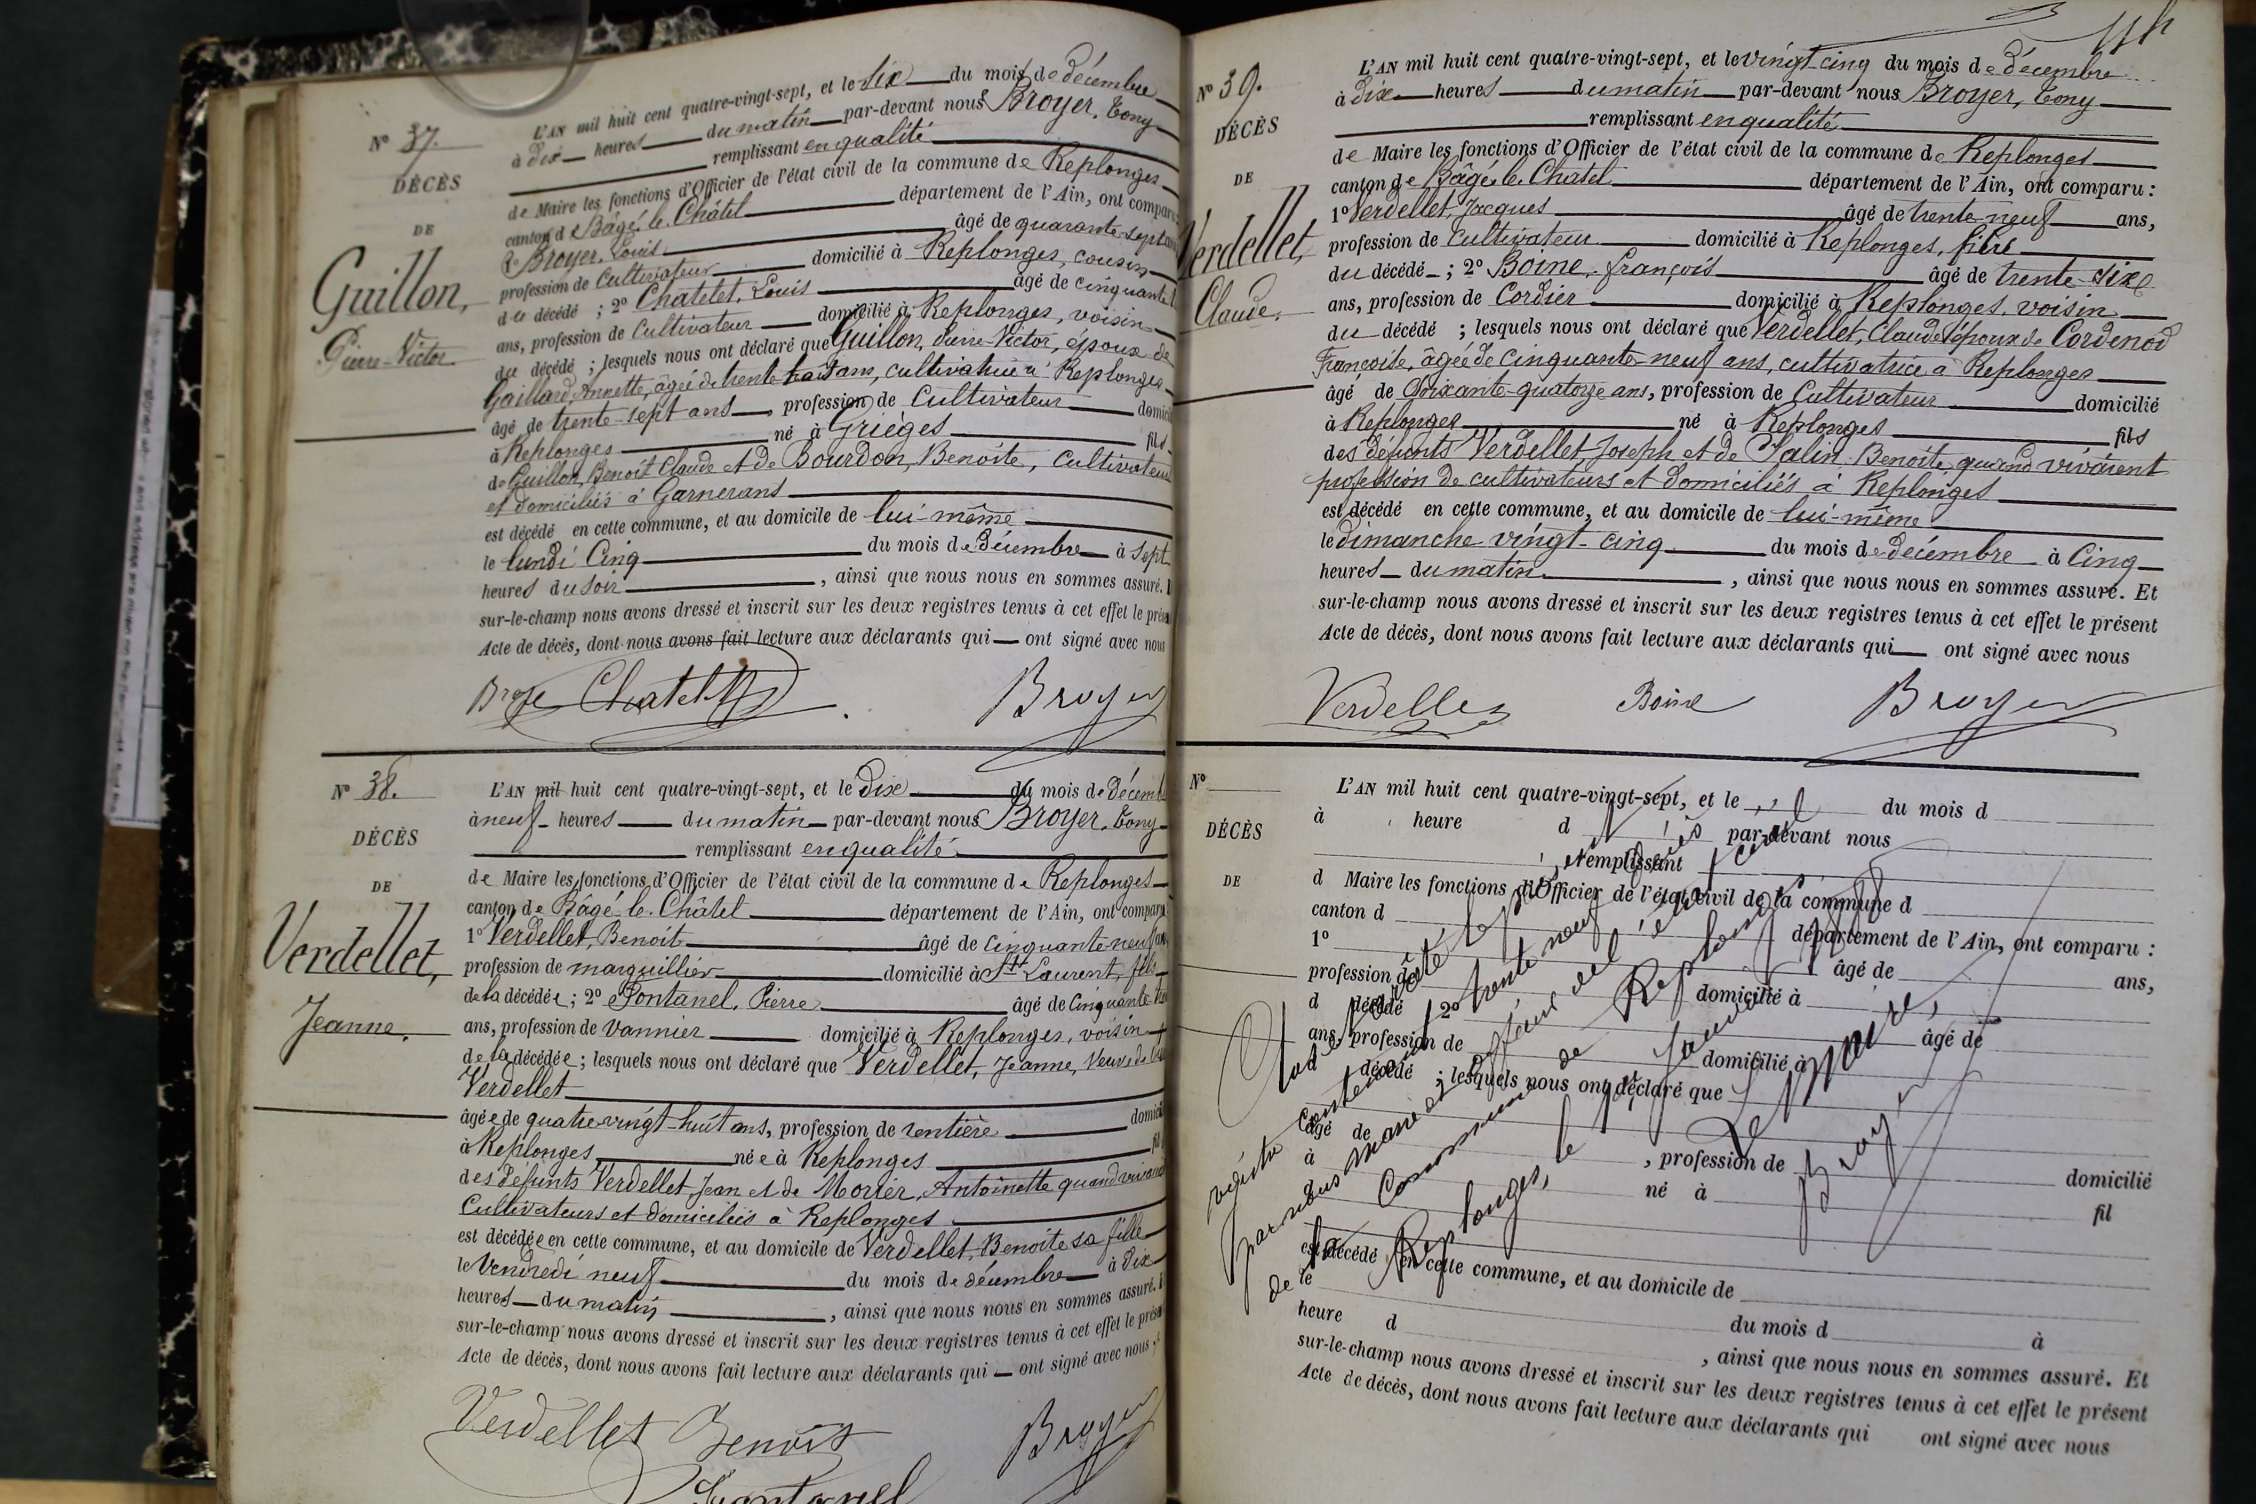 N° 37.
DÉCÈS
DE
Guillon,
Pierre-Victor
L'AN mil huit cent quatre-vingt-sept, et le six du mois de décembre
à dix heures du matin par-devant nous Broyer, Tony
remplissant en qualité
de Maire les fonctions d'Officier de l'état civil de la commune de Replonges
canton de Bâgé-le-Châtel département de l'Ain, ont comparu:
1° Broyer, Louis âgé de quarante-sept ans
profession de Cultivateur domicilié à Replonges, cousin
du décédé ; 2° Chatelet, Louis âgé de cinquante
ans, profession de Cultivateur domicilié à Replonges, voisin
du décédé ; lesquels nous ont déclaré que Guillon, Pierre-Victor, époux de
Gaillard, Annette, âgée de trente huit ans, cultivatrice à Replonges
âgé de trente-sept ans, profession de Cultivateur domici
à Replonges né à Grièges fils
de Guillon, Benoît Claude et de Bourdon, Benoite, cultivateurs
et domiciliés à Garnerans
est décédé en cette commune, et au domicile de lui-même
le lundi Cinq du mois de Décembre à sept
heures du soir, ainsi que nous nous en sommes assuré.
sur-le-champ nous avons dressé et inscrit sur les deux registres tenus à cet effet le prése
Acte de décès, dont nous avons fait lecture aux déclarants qui ont signé avec nous
Broye Chatelet Broyer
N° 38.
DÉCÈS
DE
Verdellet,
Jeanne.
L'AN mil huit cent quatre-vingt-sept, et le Dix du mois de décemb
à neuf heures du matin par-devant nous Broyer, Tony
remplissant en qualité
de Maire les fonctions d'Officier de l'état civil de la commune de Replonges
canton de Bâgé-le-Châtel département de l'Ain, ont comparu
1° Verdellet, Benoit âgé de cinquante-neuf ans
profession de marguillier domicilié à St Laurent, fils
de la décédée ; 2° Pontanel, Pierre âgé de Cinquante
ans, profession de vannier domicilié à Replonges, voisin
de la décédée ; lesquels nous ont déclaré que Verdellet, Jeanne, Veuve de
Verdellet
âgée de quatre vingt-huit ans, profession de rentière domici
à Replonges née à Replonges fil
des défunts Verdellet Jean et de Morier, Antoinette quand vivaient
Cultivateurs et domiciliés à Replonges
est décédée en cette commune, et au domicile de Verdellet, Benoite sa fille
le Vendredi neuf du mois de décembre à dix
heures du matin, ainsi que nous nous en sommes assuré.
sur-le-champ nous avons dressé et inscrit sur les deux registres tenus à cet effet le prése
Acte de décès, dont nous avons fait lecture aux déclarants qui ont signé avec nous
Verdellet Benoit Broyer
Pontanel
N° 39.
DÉCÈS
DE
Verdellet,
Claude.
L'AN mil huit cent quatre-vingt-sept, et le vingt-cinq du mois de décembre
à dix heures du matin par-devant nous Broyer, Tony
remplissant en qualité
de Maire les fonctions d'Officier de l'état civil de la commune de Replonges
canton de Bâgé-le-Chatel département de l'Ain, ont comparu :
1° Verdellet, Jacques âgé de trente-neuf ans,
profession de Cultivateur domicilié à Replonges, frère
du décédé ; 2° Boine, François âgé de trente-six
ans, profession de Cordier domicilié à Replonges, voisin
du décédé ; lesquels nous ont déclaré que Verdellet, Claude époux de Cordenod
Françoise, âgée de cinquante-neuf ans, cultivatrice à Replonges
âgé de Soixante-quatorze ans, profession de Cultivateur domicilié
à Replonges né à Replonges fils
des défunts Verdellet Joseph et de Jalin Benoite, quand vivaient
profession de cultivateurs et domiciliés à Replonges
est décédé en cette commune, et au domicile de lui-même
le dimanche vingt-cinq du mois de décembre à Cinq
heures du matin, ainsi que nous nous en sommes assuré. Et
sur-le-champ nous avons dressé et inscrit sur les deux registres tenus à cet effet le présent
Acte de décès, dont nous avons fait lecture aux déclarants qui ont signé avec nous
Verdellet Boine Broyer
N°
DÉCÈS
DE
L'AN mil huit cent quatre-vingt-sept, et le du mois d
à heure d par-devant nous
remplissant
d Maire les fonctions d'Officier de l'état civil de la commune d
canton d département de l'Ain, ont comparu :
1° âgé de ans,
profession de domicilié à
d décédé 2° âgé de
ans, profession de domicilié à
d décédé ; lesquels nous ont déclaré que
âgé de , profession de domicilié
à né à fil
est décédé en cette commune, et au domicile de
le du mois d à
heure d , ainsi que nous nous en sommes assuré. Et
sur-le-champ nous avons dressé et inscrit sur les deux registres tenus à cet effet le présent
Acte de décès, dont nous avons fait lecture aux déclarants qui ont signé avec nous
Clos et arrêté le présent
registre contenant trente neuf décès
par nous Maire et officier de l'état civil
de la Commune de Replonges
Replonges, le janvier
Le Maire,
Broyer